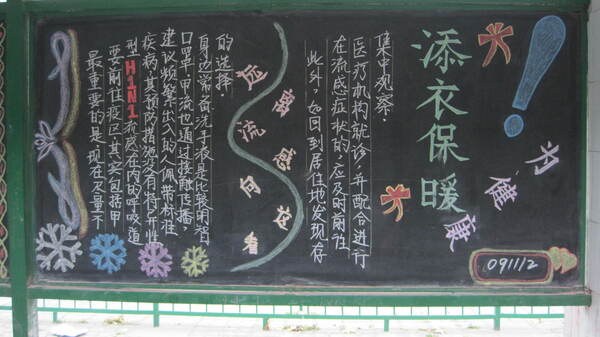 最重要的是,现在尽量不
要前往疫区,其实,包括甲
型H1N1流感在内的呼吸道
疾病,其预防措施没有特异性
建议频繁出入的人佩带标准
口罩,甲流也通过接触飞播,
身边常备洗手液是比较明智
的选择.
远离流感向这看
此外,如回到居住地发现存
在流感症状的,应及时前往
医疗机构就诊,并配合进行
集中观察.
添衣保暖
为健康
091112